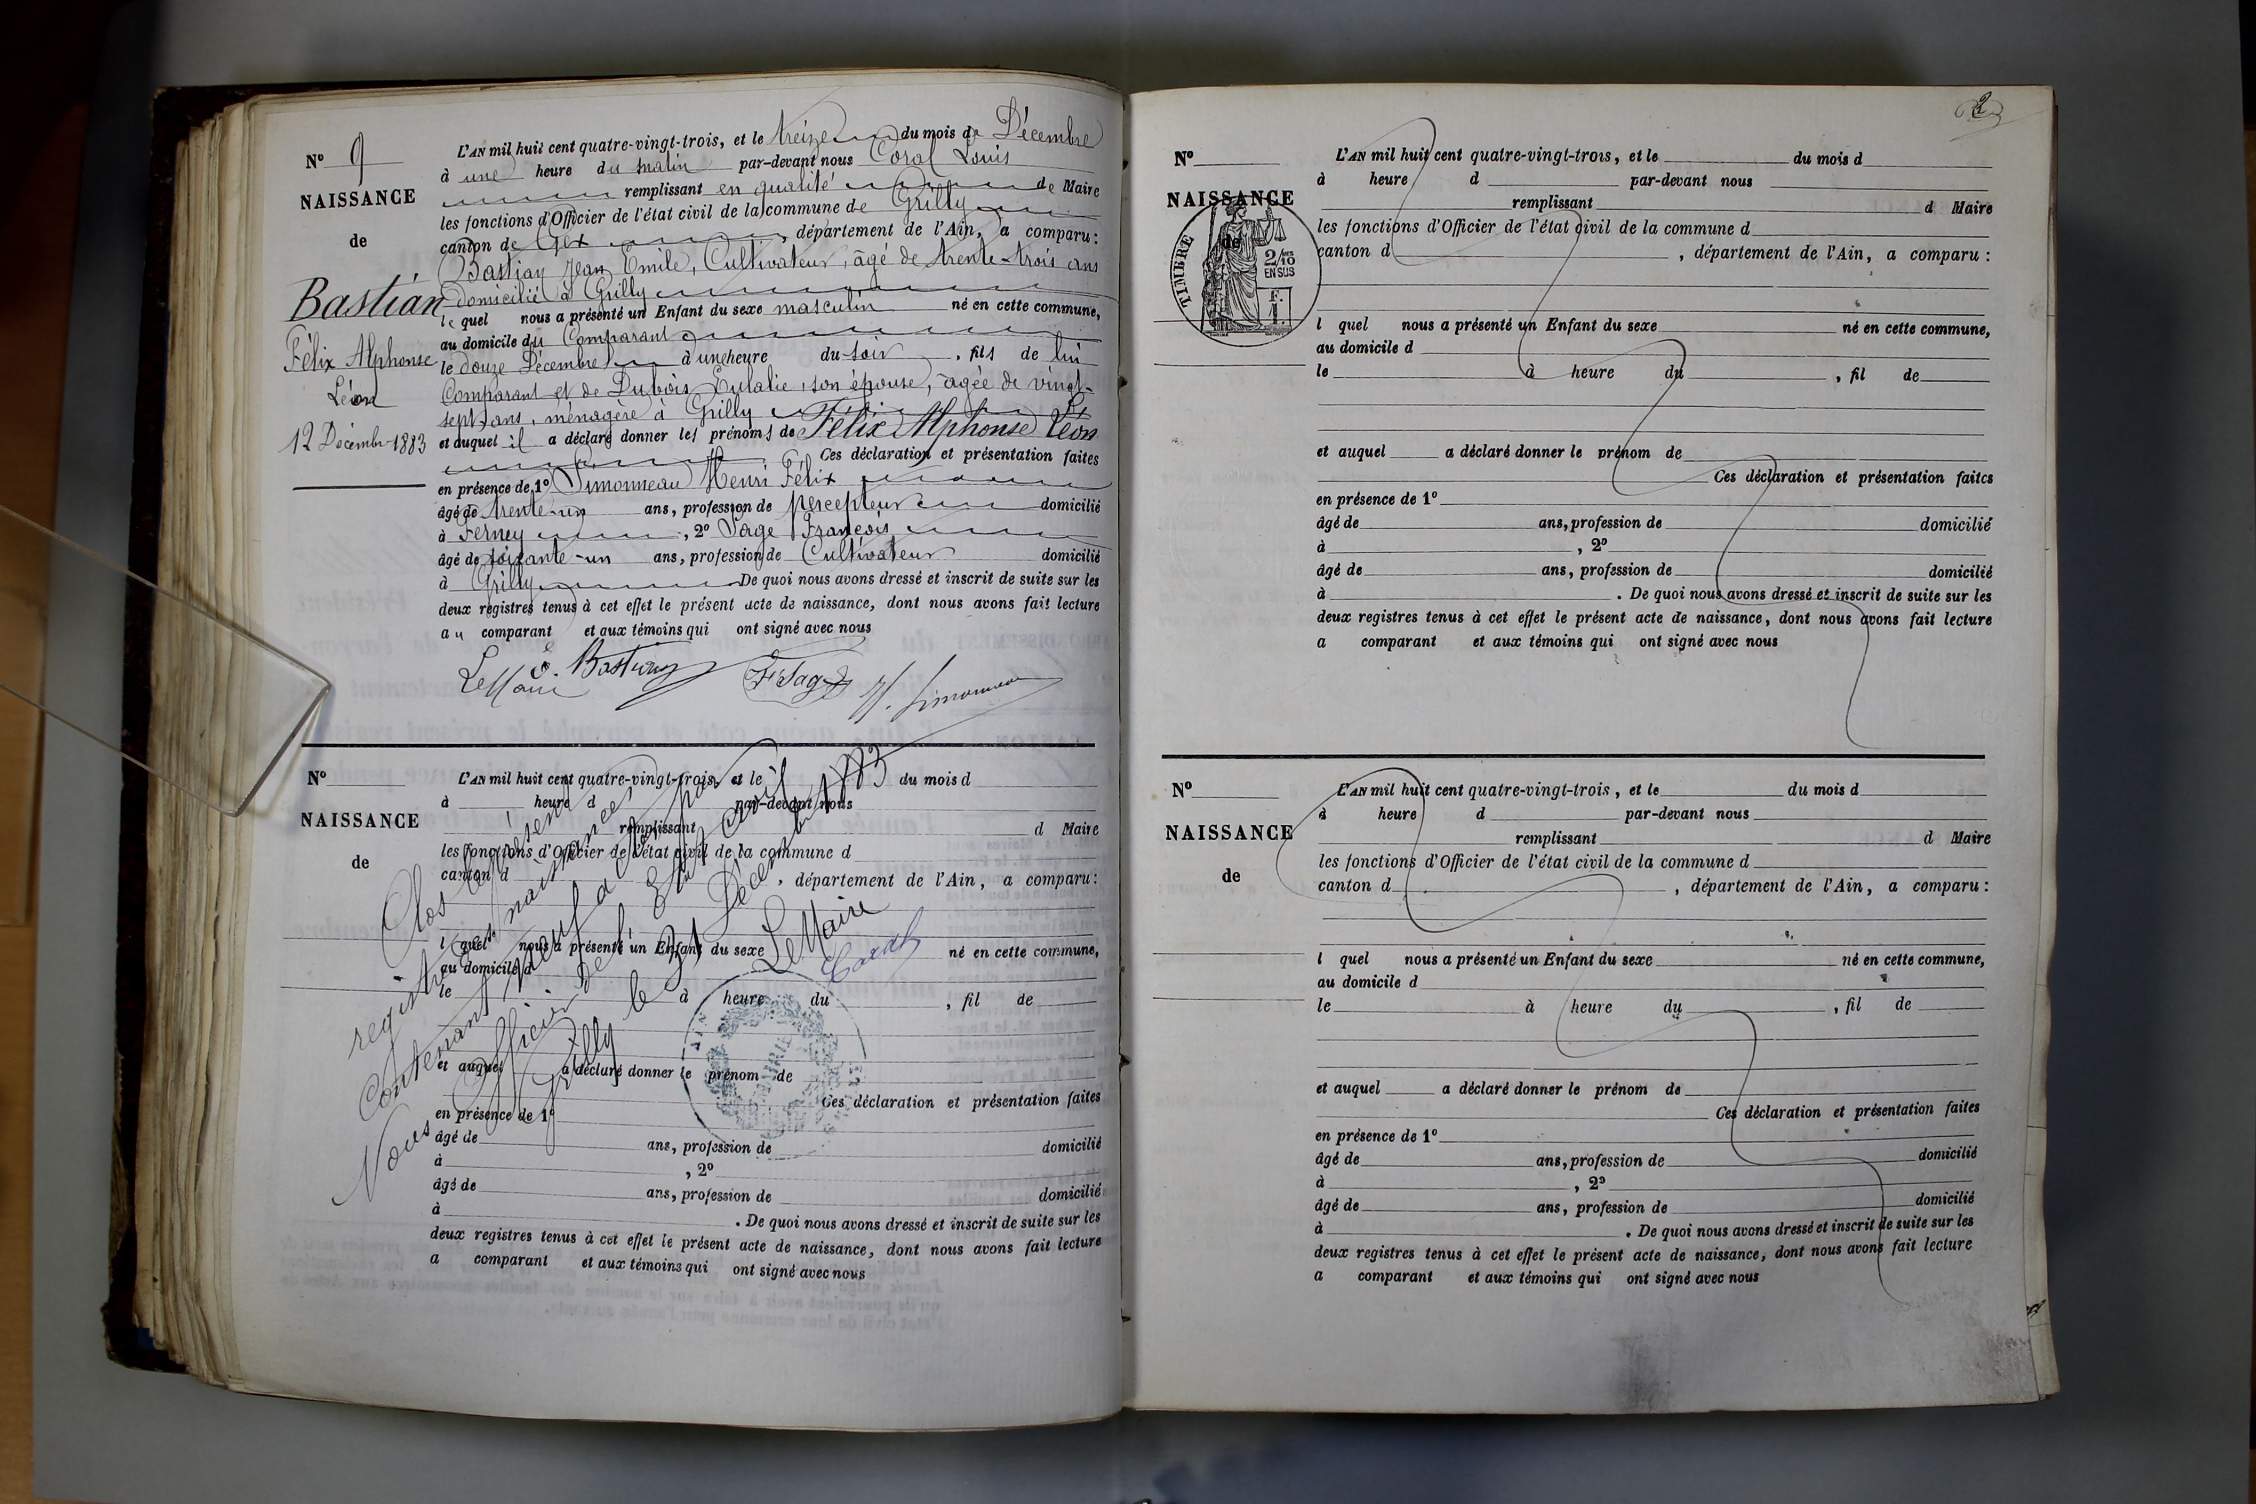 N° 9
NAISSANCE
de
Bastian
Félix Alphonse
Léon
12 Décembre 1883
L'AN mil huit cent quatre-vingt-trois, et le treize du mois de Décembre
à une heure du matin par-devant nous Coral Louis
remplissant en qualité de Maire
les fonctions d'Officier de l'état civil de la commune de Grilly
canton de Gex, département de l'Ain, a comparu:
Bastian Jean Emile, Cultivateur, âgé de trente-trois ans
domicilié à Grilly
lequel nous a présenté un Enfant du sexe masculin né en cette commune,
au domicile du Comparant
le douze Décembre à une heure du soir, fils de lui
Comparant et de Dubois Eulalie, son épouse, âgée de vingt-
sept ans, ménagère à Grilly
et auquel il a déclaré donner les prénoms de Félix Alphonse Léon
Ces déclaration et présentation faites
en présence de 1° Simonneau Henri Félix
âgé de trente-un ans, profession de percepteur domicilié
à Ferney, 2° Sage François
âgé de soixante-un ans, profession de Cultivateur domicilié
à Grilly De quoi nous avons dressé et inscrit de suite sur les
deux registres tenus à cet effet le présent acte de naissance, dont nous avons fait lecture
au comparant et aux témoins qui ont signé avec nous
Le Maire E. Bastian F Sage H. Simonneau
N°
NAISSANCE
de
L'AN mil huit cent quatre-vingt-trois, et le du mois d
à heure d par-devant nous
remplissant d Maire
les fonctions d'Officier de l'état civil de la commune d
canton d , département de l'Ain, a comparu:
l quel nous a présenté un Enfant du sexe né en cette commune,
au domicile d
le à heure du , fil de
et auquel a déclaré donner le prénom de
Ces déclaration et présentation faites
en présence de 1°
âgé de ans, profession de domicilié
à , 2°
âgé de ans, profession de domicilié
à . De quoi nous avons dressé et inscrit de suite sur les
deux registres tenus à cet effet le présent acte de naissance, dont nous avons fait lecture
a comparant et aux témoins qui ont signé avec nous
Clos le présent
registre des naissances
Contenant neuf actes par
Nous Officier de l'Etat civil
Grilly le 31 Décembre 1883
Le Maire
Coral
MAIRIE
2
N°
NAISSANCE
de
TIMBRE
2/10
EN SUS
F.
1
L'AN mil huit cent quatre-vingt-trois, et le du mois d
à heure d par-devant nous
remplissant d Maire
les fonctions d'Officier de l'état civil de la commune d
canton d , département de l'Ain, a comparu:
l quel nous a présenté un Enfant du sexe né en cette commune,
au domicile d
le à heure du , fil de
et auquel a déclaré donner le prénom de
Ces déclaration et présentation faites
en présence de 1°
âgé de ans, profession de domicilié
à , 2°
âgé de ans, profession de domicilié
à . De quoi nous avons dressé et inscrit de suite sur les
deux registres tenus à cet effet le présent acte de naissance, dont nous avons fait lecture
a comparant et aux témoins qui ont signé avec nous
N°
NAISSANCE
de
L'AN mil huit cent quatre-vingt-trois, et le du mois d
à heure d par-devant nous
remplissant d Maire
les fonctions d'Officier de l'état civil de la commune d
canton d , département de l'Ain, a comparu:
l quel nous a présenté un Enfant du sexe né en cette commune,
au domicile d
le à heure du , fil de
et auquel a déclaré donner le prénom de
Ces déclaration et présentation faites
en présence de 1°
âgé de ans, profession de domicilié
à , 2°
âgé de ans, profession de domicilié
à . De quoi nous avons dressé et inscrit de suite sur les
deux registres tenus à cet effet le présent acte de naissance, dont nous avons fait lecture
a comparant et aux témoins qui ont signé avec nous